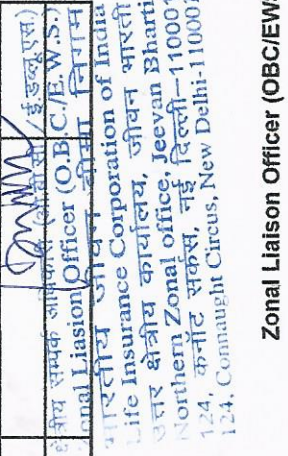 क्षेत्रीय सम्पर्क अधिकारी (ओ.बी.सी./ई.डब्लू.एस)
Zonal Liasion Officer (O.B.C./E.W.S.)
भारतीय जीवन बीमा निगम
Life Insurance Corporation of India
उत्तर क्षेत्रीय कार्यालय, जीवन भारती
Northern Zonal office, Jeevan Bharti
124, कनॉट सर्कस, नई दिल्ली-110001
124, Connaught Circus, New Delhi-110001
Zonal Liaison Officer (OBC/EWS